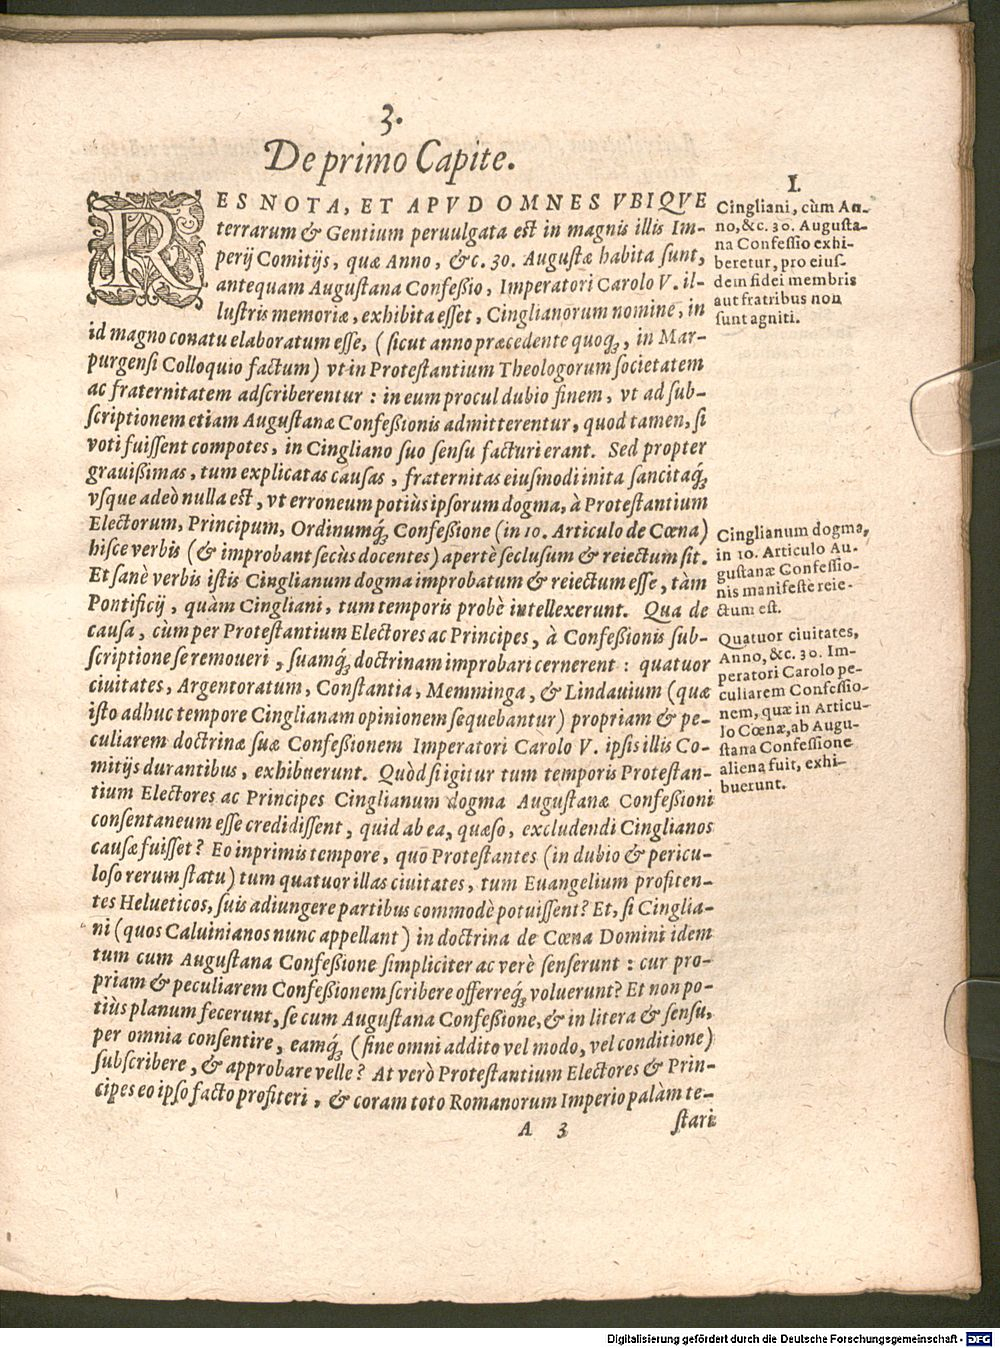 3.
De primo Capite.
RES NOTA, ET APVD OMNES VBIQVE
terrarum & Gentium peruulgata est in magnis illis Im-
perij Comitijs, quæ Anno, &c. 30. Augustæ habita sunt,
antequam Augustana Confeßio, Imperatori Carolo V. il-
lustris memoriæ, exhibita esset, Cinglianorum nomine, in
id magno conatu elaboratum esse, (sicut anno præcedente quoqꝫ, in Mar-
purgensi Colloquio factum) vt in Protestantium Theologorum societatem
ac fraternitatem adscriberentur: in eum procul dubio finem, vt ad sub-
scriptionem etiam Augustanæ Confeßionis admitterentur, quod tamen, si
voti fuissent compotes, in Cingliano suo sensu facturi erant. Sed propter
grauißimas, tum explicatas causas, fraternitas eiusmodi inita sancitaq́ꝫ
vsque adeò nulla est, vt erroneum potiùs ipsorum dogma, à Protestantium
Electorum, Principum, Ordinumq́ꝫ Confeßione (in 10. Articulo de Cœna)
hisce verbis (& improbant secùs docentes) apertè seclusum & reiectum sit.
Et sanè verbis istis Cinglianum dogma improbatum & reiectum esse, tàm
Pontificij, quàm Cingliani, tum temporis probè intellexerunt. Qua de
causa, cùm per Protestantium Electores ac Principes, à Confeßionis sub-
scriptione se remoueri, suamq́ꝫ doctrinam improbari cernerent: quatuor
ciuitates, Argentoratum, Constantia, Memminga, & Lindauium (quæ
isto adhuc tempore Cinglianam opinionem sequebantur) propriam & pe-
culiarem doctrinæ suæ Confeßionem Imperatori Carolo V. ipsis illis Co-
mitijs durantibus, exhibuerunt. Quòd si igitur tum temporis Protestan-
tium Electores ac Principes Cinglianum dogma Augustanæ Confeßioni
consentaneum esse credidissent, quid ab ea, quæso, excludendi Cinglianos
causæ fuisset? Eo inprimis tempore, quo Protestantes (in dubio & pericu-
loso rerum statu) tum quatuor illas ciuitates, tum Euangelium profiten-
tes Helueticos, suis adiungere partibus commodè potuissent? Et, si Cinglia-
ni (quos Caluinianos nunc appellant) in doctrina de Cœna Domini idem
tum cum Augustana Confeßione simpliciter ac verè senserunt: cur pro-
priam & peculiarem Confeßionem scribere offerreq́ꝫ voluerunt? Et non po-
tiùs planum fecerunt, se cum Augustana Confeßione, & in litera & sensu,
per omnia consentire, eamq́ꝫ (sine omni addito vel modo, vel conditione)
subscribere, & approbare velle? At verò Protestantium Electores & Prin-
cipes eo ipso facto profiteri, & coram toto Romanorum Imperio palàm te-
A 3 stari
I.
Cingliani, cùm An-
no, &c. 30. Augusta-
na Confessio exhi-
beretur, pro eius-
dem fidei membris
aut fratribus non
sunt agniti.
Cinglianum dogma,
in 10. Articulo Au-
gustanæ Confessio-
nis manifestè reie-
ctum est.
Quatuor ciuitates,
Anno, &c. 30. Im-
peratori Carolo pe-
culiarem Confessio-
nem, quæ in Articu-
lo Cœnæ, ab Augu-
stana Confessione
aliena fuit, exhi-
buerunt.
Digitalisierung gefördert durch die Deutsche Forschungsgemeinschaft - DFG